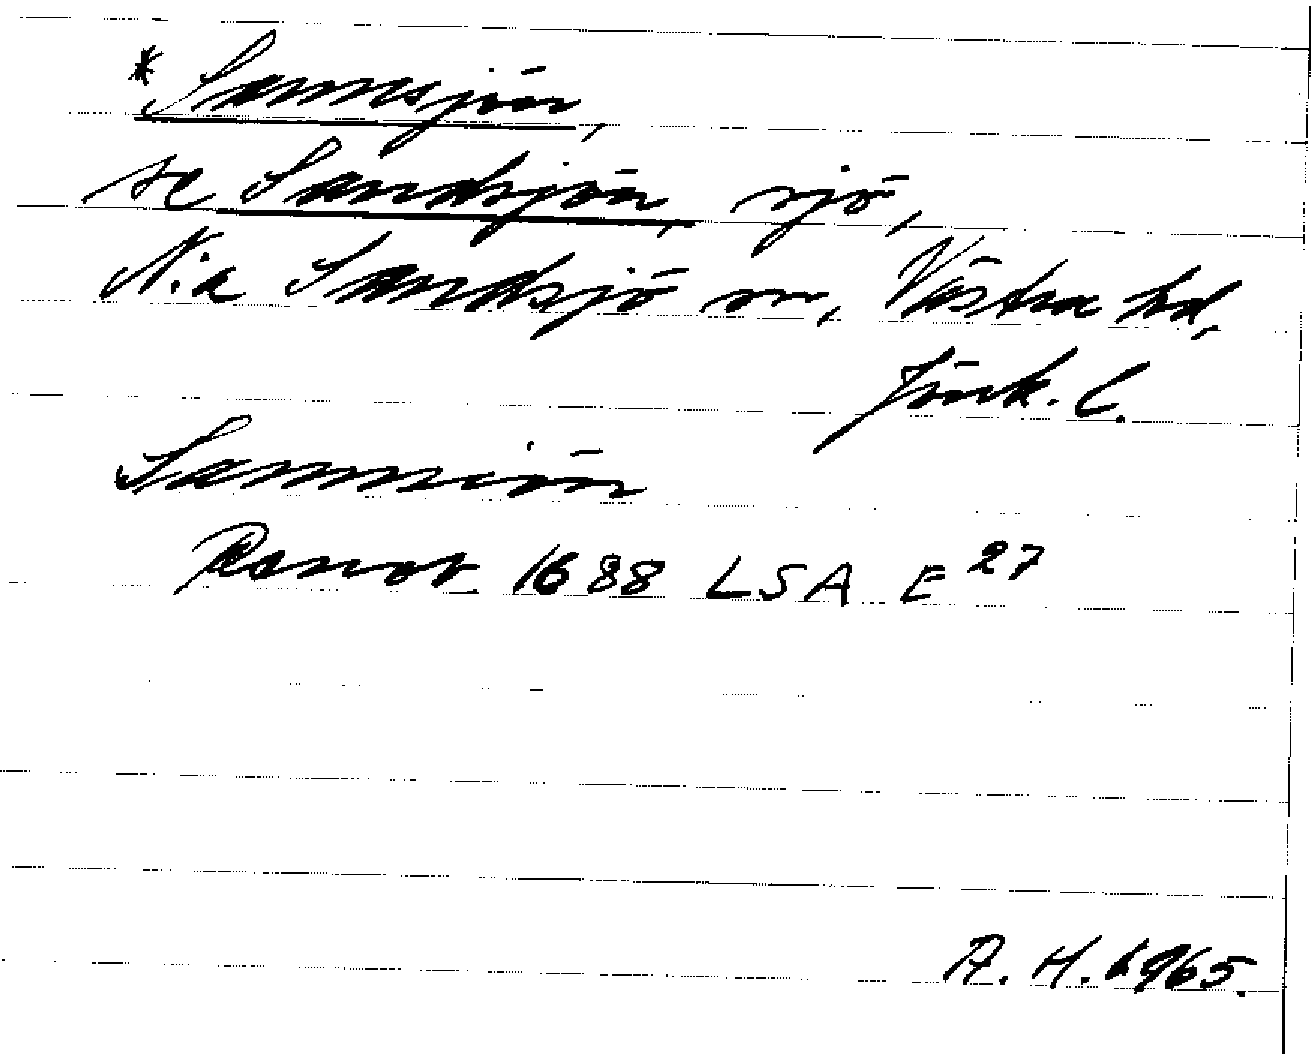 *Sannsjön,
se Sandsjön, sjö,
N:a Sandsjö sn, Västra hd,
Jönk. l.
Sannsiön
Rannot. 1688 LSA E 27
A. H. 1965.